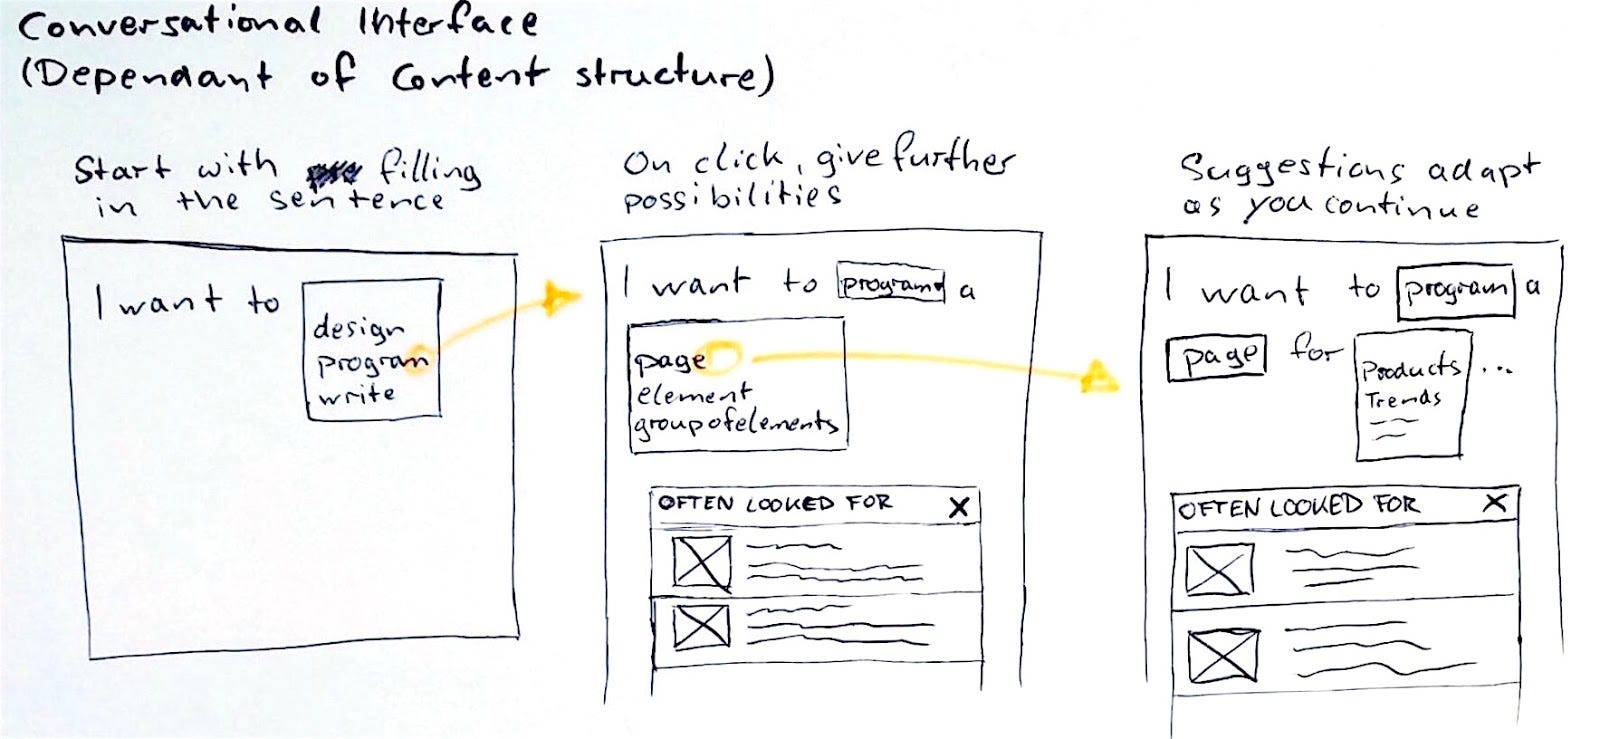 Conversational Interface
(Dependant of Content structure)
Start with filling
in the sentence
I want to
design
program
write
On click, give further
possibilities
I want to program a
page
element
group of elements
OFTEN LOOKED FOR X
Suggestions adapt
as you continue
I want to program a
page for
Products ...
Trends
OFTEN LOOKED FOR X